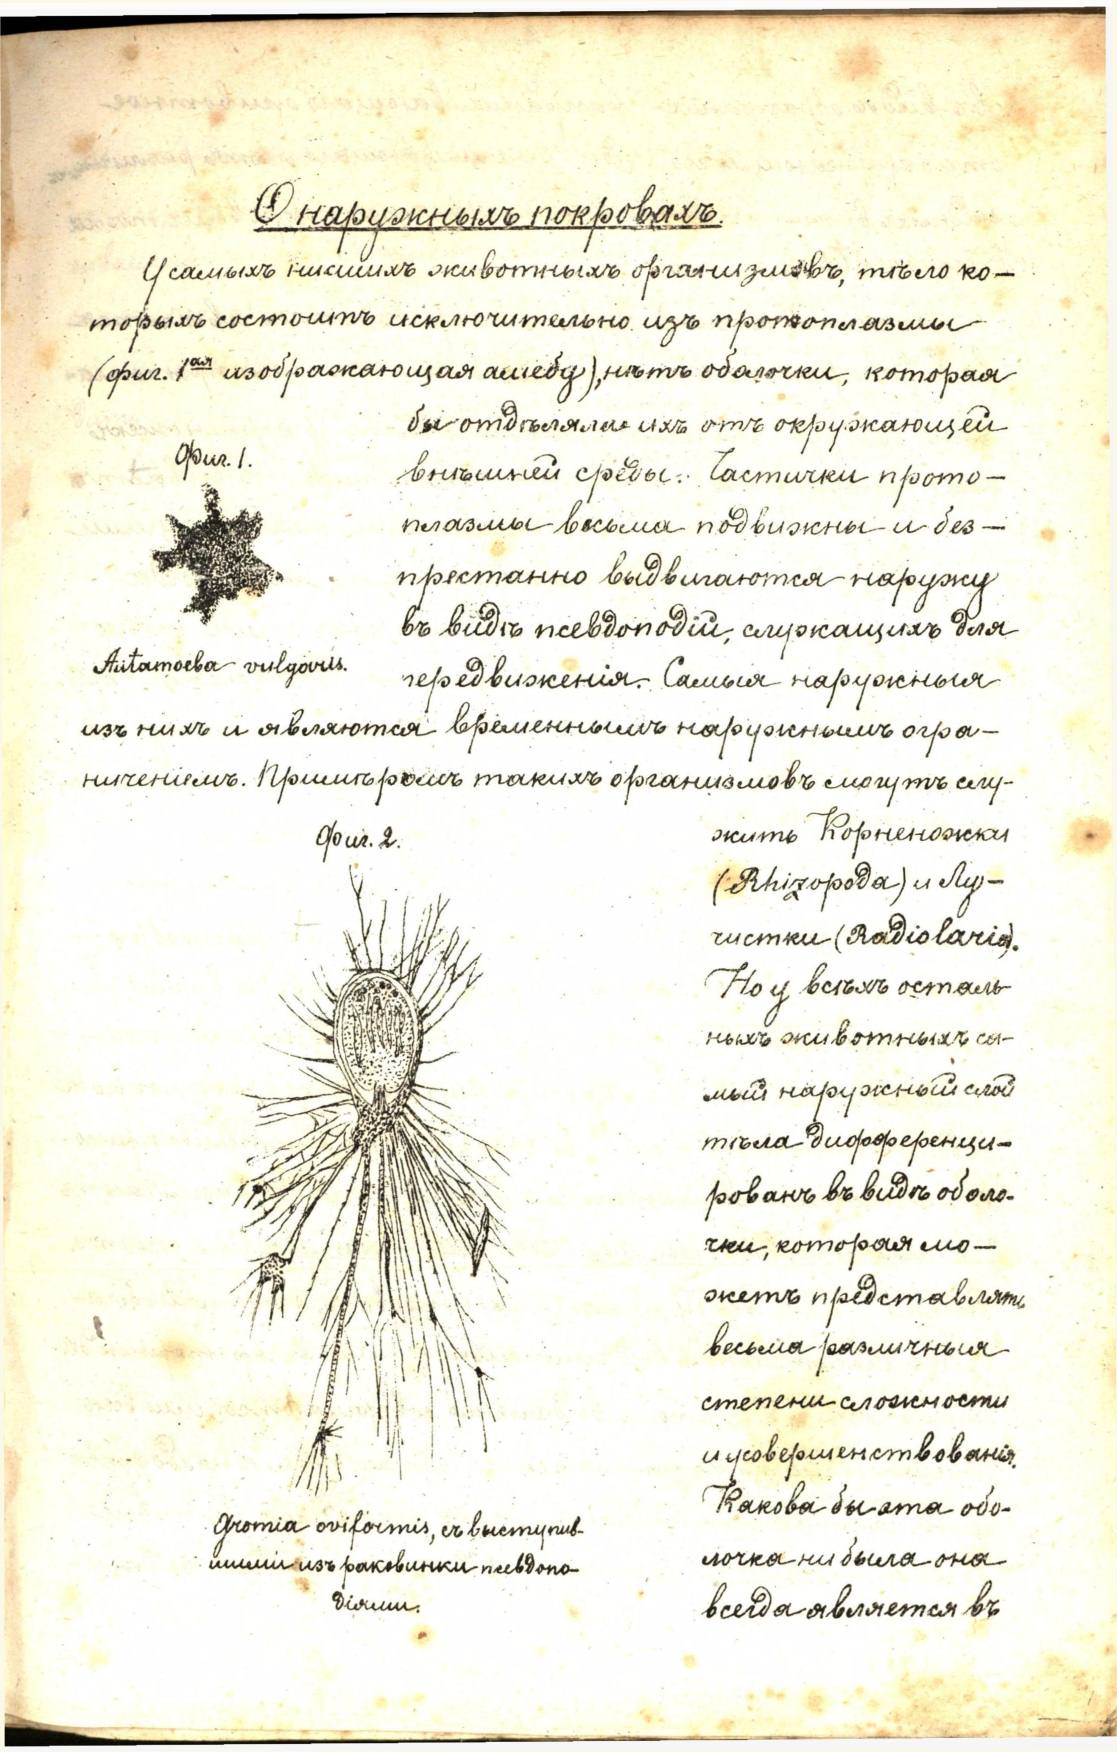 О наружныхъ покровахъ.
У самыхъ низшихъ животныхъ организмовъ, тѣло ко-
торыхъ состоитъ исключительно изъ протоплазмы
(фиг. 1ая изображающая амебу), нѣтъ оболочки, которая
бы отдѣляла ихъ отъ окружающей
внѣшней среды. Частички прото-
плазмы весьма подвижны и без-
престанно выдвигаются наружу
въ видѣ псевдоподій, служащихъ для
передвиженія. Самыя наружныя
изъ нихъ и являются временнымъ наружнымъ огра-
ниченіемъ. Примѣромъ такихъ организмовъ могутъ слу-
Фиг. 1.
Autamoeba vulgaris.
жить Корненожки
(Rhizopoda) и Лу-
чистки (Radiolaria).
Но у всѣхъ осталь
ныхъ животныхъ са-
мый наружный слой
тѣла дифференци-
рованъ въ видѣ оболо-
чки, которая мо-
жетъ представлять
весьма различныя
степени сложности
и усовершенствованія.
Какова бы эта обо-
лочка ни была она
всегда является въ
Фиг. 2.
Gromia oviformis, съ выступив-
шими изъ раковинки псевдопо-
діями.